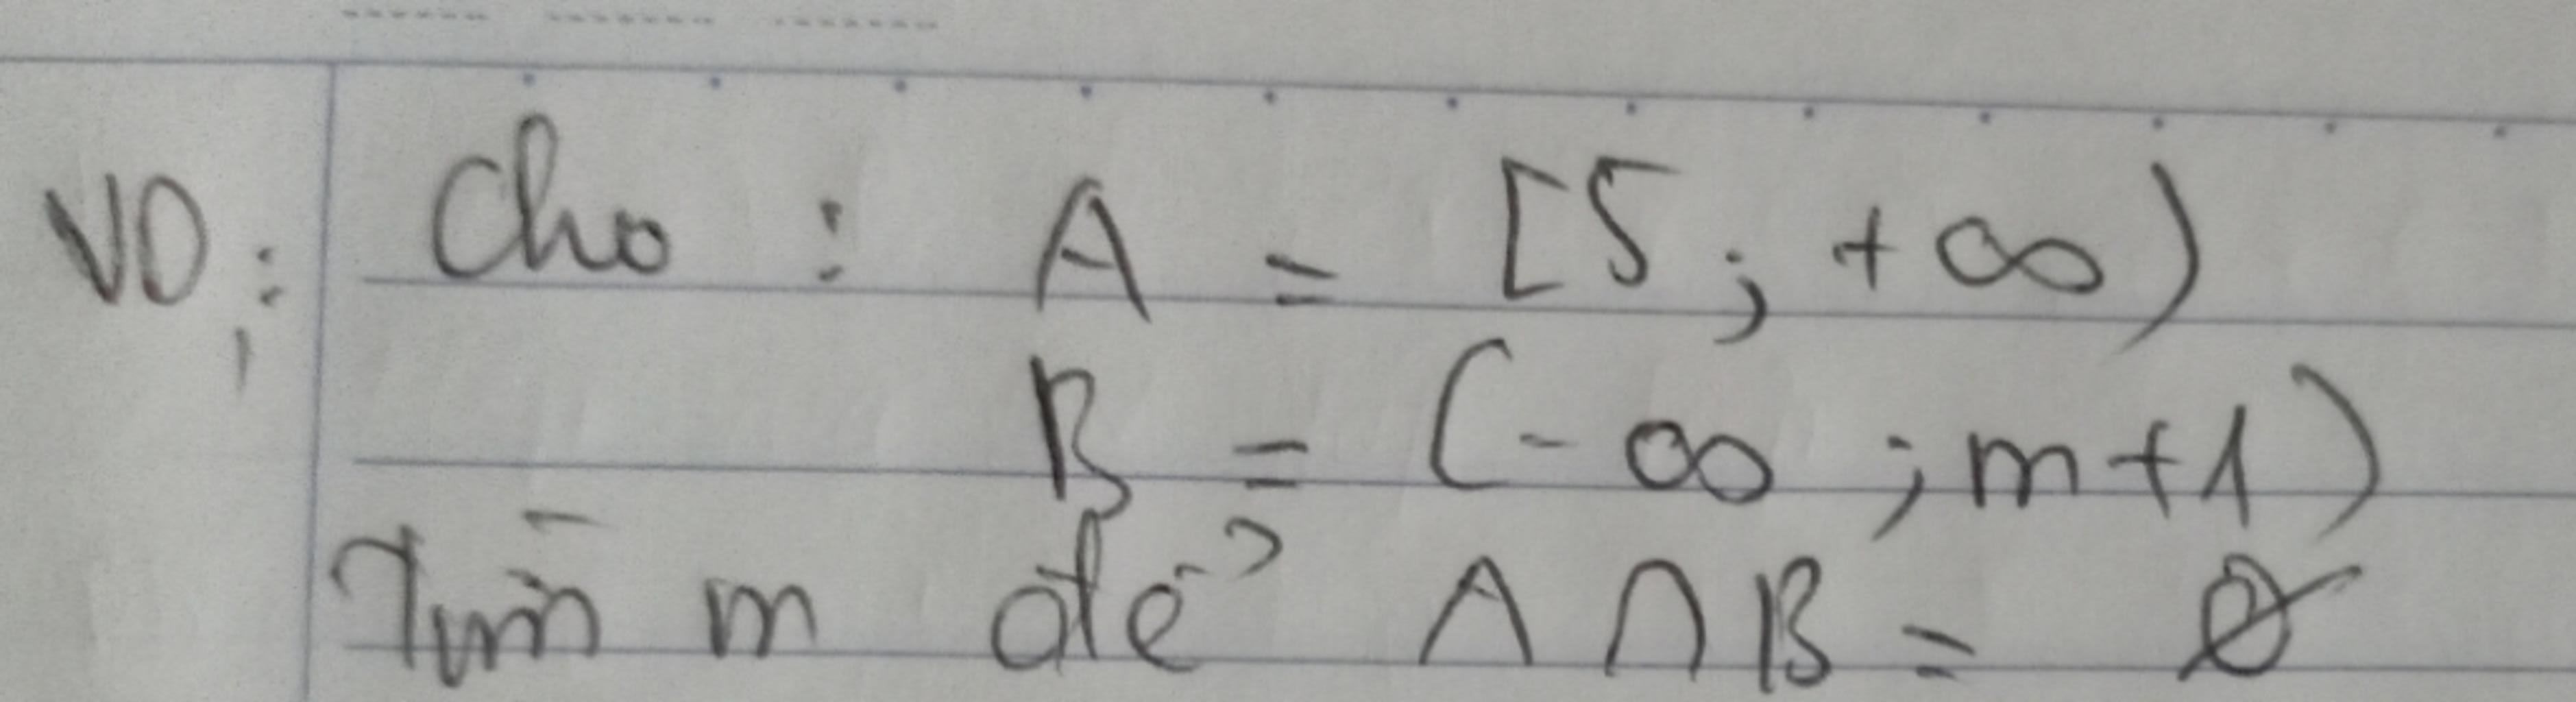 VD: Cho : A = [5 ; +∞)
B = (-∞ ; m+1)
Tìm m để A ∩ B = Ø